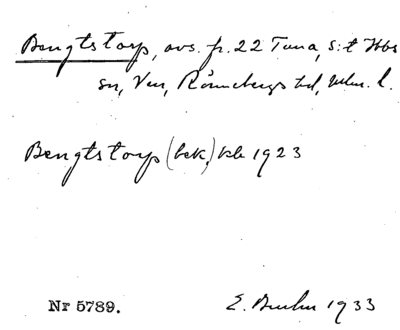 Bengtstorp, avs. fr. 22 Tuna, S:t Ilbs
sn, Ven, Rönnebergs hd, Mlm. l.
Bengtstorp (bek.) kb 1923
Nr 5789.
E. 1933